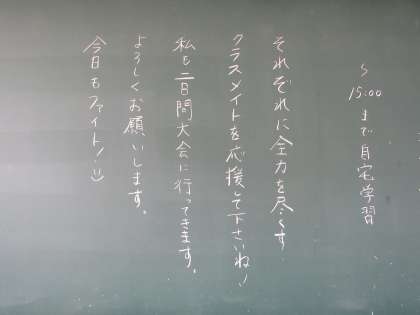 〜15:00まで自宅学習
それぞれに全力を尽くす
クラスメイトを応援して下さいね!
私も二日間大会に行ってきます。
よろしくお願いします。
今日もファイト!:)